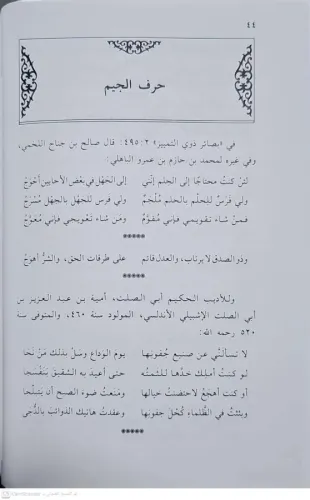 ٤٤
حرف الجيم
في «بصائر ذوي التمييز» ٢: ٤٩٥: قال صالح بن جناح اللخمي،
وفي غيره لمحمد بن حازم بن عمرو الباهلي:
لئن كنت محتاجًا إلى الحلم إنني إلى الجهل في بعض الأحايين أحوج
ولي فرس للحلم بالحلم ملجم ولي فرس للجهل بالجهل مسرج
فمن شاء تقويمي فإني مقوم ومن شاء تعويجي فإني معوج
*****
وذو الصدق لا يرتاب، والعدل قائم على طرقات الحق، والشر أهوج
*****
وللأديب الحكيم أبي الصلت، أمية بن عبد العزيز بن
أبي الصلت الإشبيلي الأندلسي، المولود سنة ٤٦٠، والمتوفى سنة
٥٢٠ رحمه الله:
لا تسألنني عن صنيع جفونها يوم الوداع وسل بذلك من نجا
لو كنت أملك خدها للثمته حتى أعيد به الشقيق بنفسجا
أو كنت أهجع لاحتضنت خيالها ومنعت ضوء الصبح أن يتبلجا
وبثثت في الظلماء كحل جفونها وعقدت هاتيك الذوائب بالدجى
*****
CamScanner